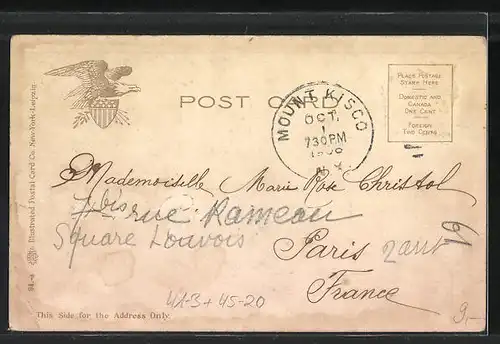 POST CARD
MOUNT KISCO
OCT.
1
730PM
N.Y.
PLACE POSTAGE
STAMP HERE
DOMESTIC AND
CANADA
ONE CENT
FOREIGN
TWO CENTS
Mademoiselle Marie Rose Christol
7 bis rue Rameau
Square Louvois
Paris
France
61
4A3+45-20
9.-
94-6 Illustrated Postal Card Co. New-York-Leipzig.
This Side for the Address Only.